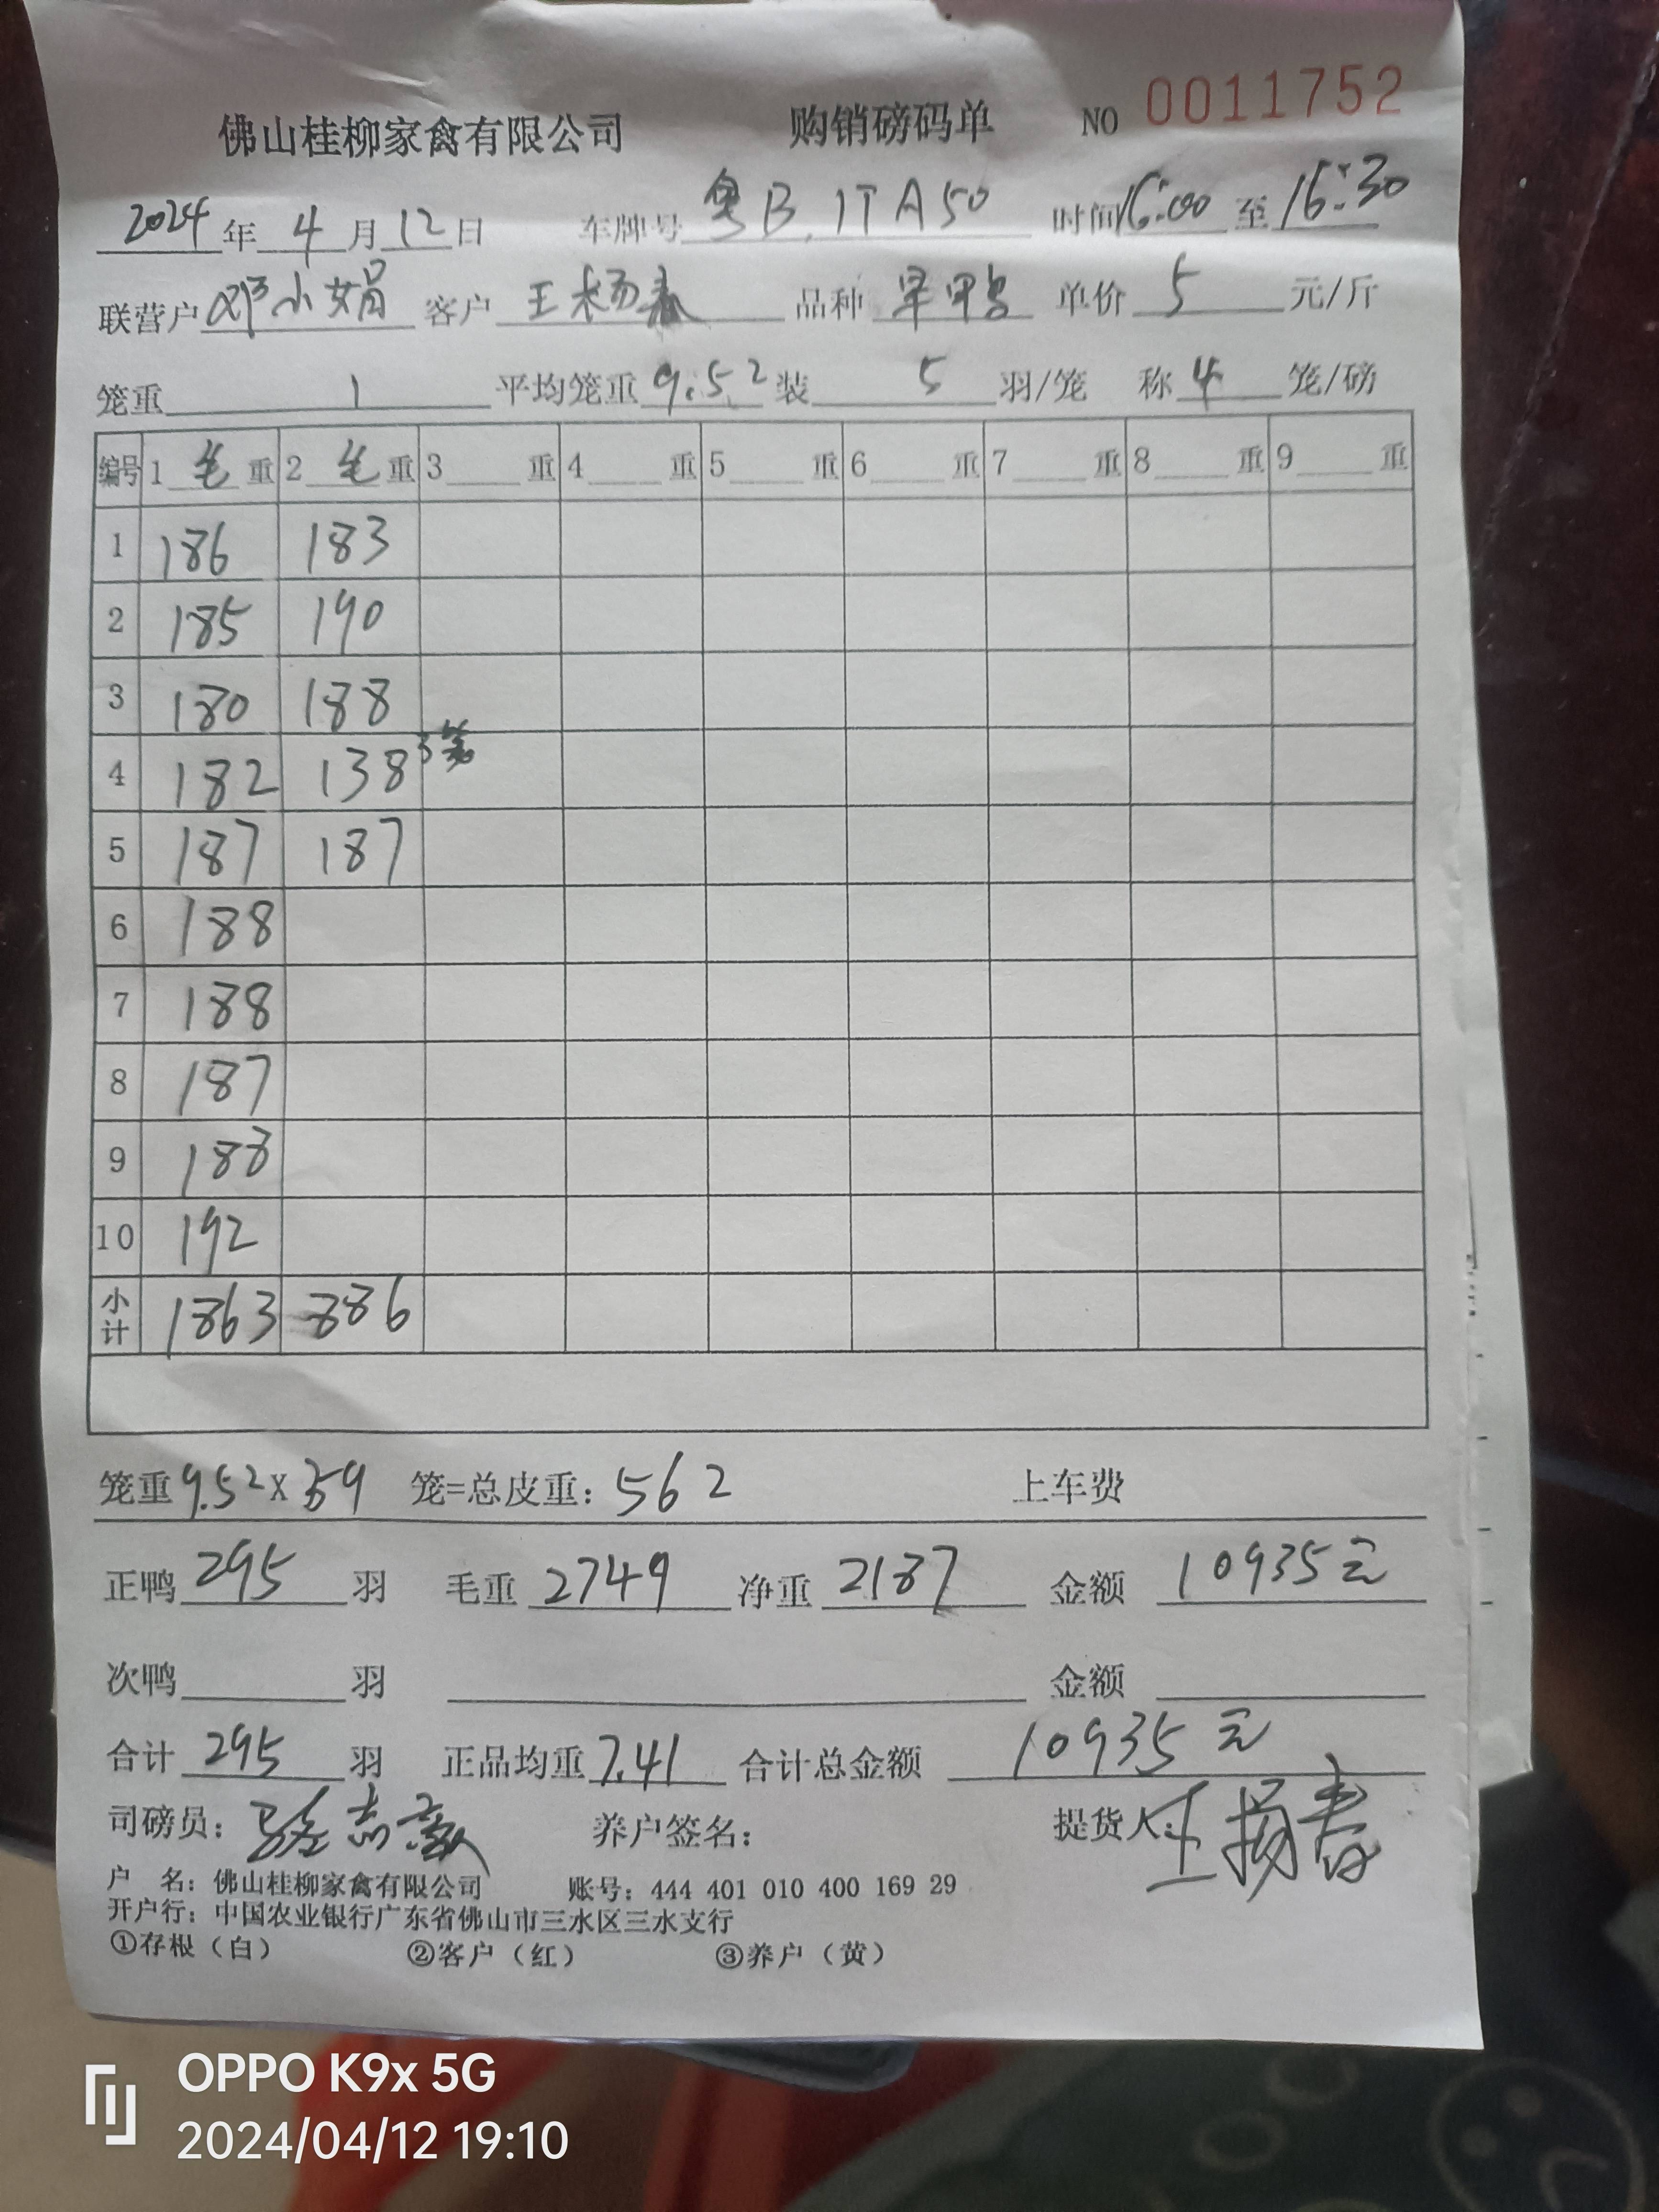 佛山桂柳家禽有限公司 购销磅码单 NO 0011752
2024年4月12日 车牌号粤B.1TA50 时间16:00至16:30
联营户邓小娟 客户王杨春 品种旱甲鸟 单价5元/斤
笼重1 平均笼重9.52装5羽/笼 称4笼/磅
编号 1毛重 2毛重 3 重 4 重 5 重 6 重 7 重 8 重 9 重
1 186 183
2 185 190
3 180 188
4 182 138 3笼
5 187 187
6 188
7 188
8 187
9 188
10 192
小计 1863 886
笼重9.52X59 笼=总皮重:562 上车费
正鸭295羽 毛重2749 净重2187 金额10935元
次鸭 羽 金额
合计295羽 正品均重7.41 合计总金额10935元
司磅员: 骆志豪 养户签名: 提货人:王扬春
户 名:佛山桂柳家禽有限公司 账号:444 401 010 400 169 29
开户行:中国农业银行广东省佛山市三水区三水支行
①存根(白) ②客户(红) ③养户(黄)
OPPO K9x 5G
2024/04/12 19:10